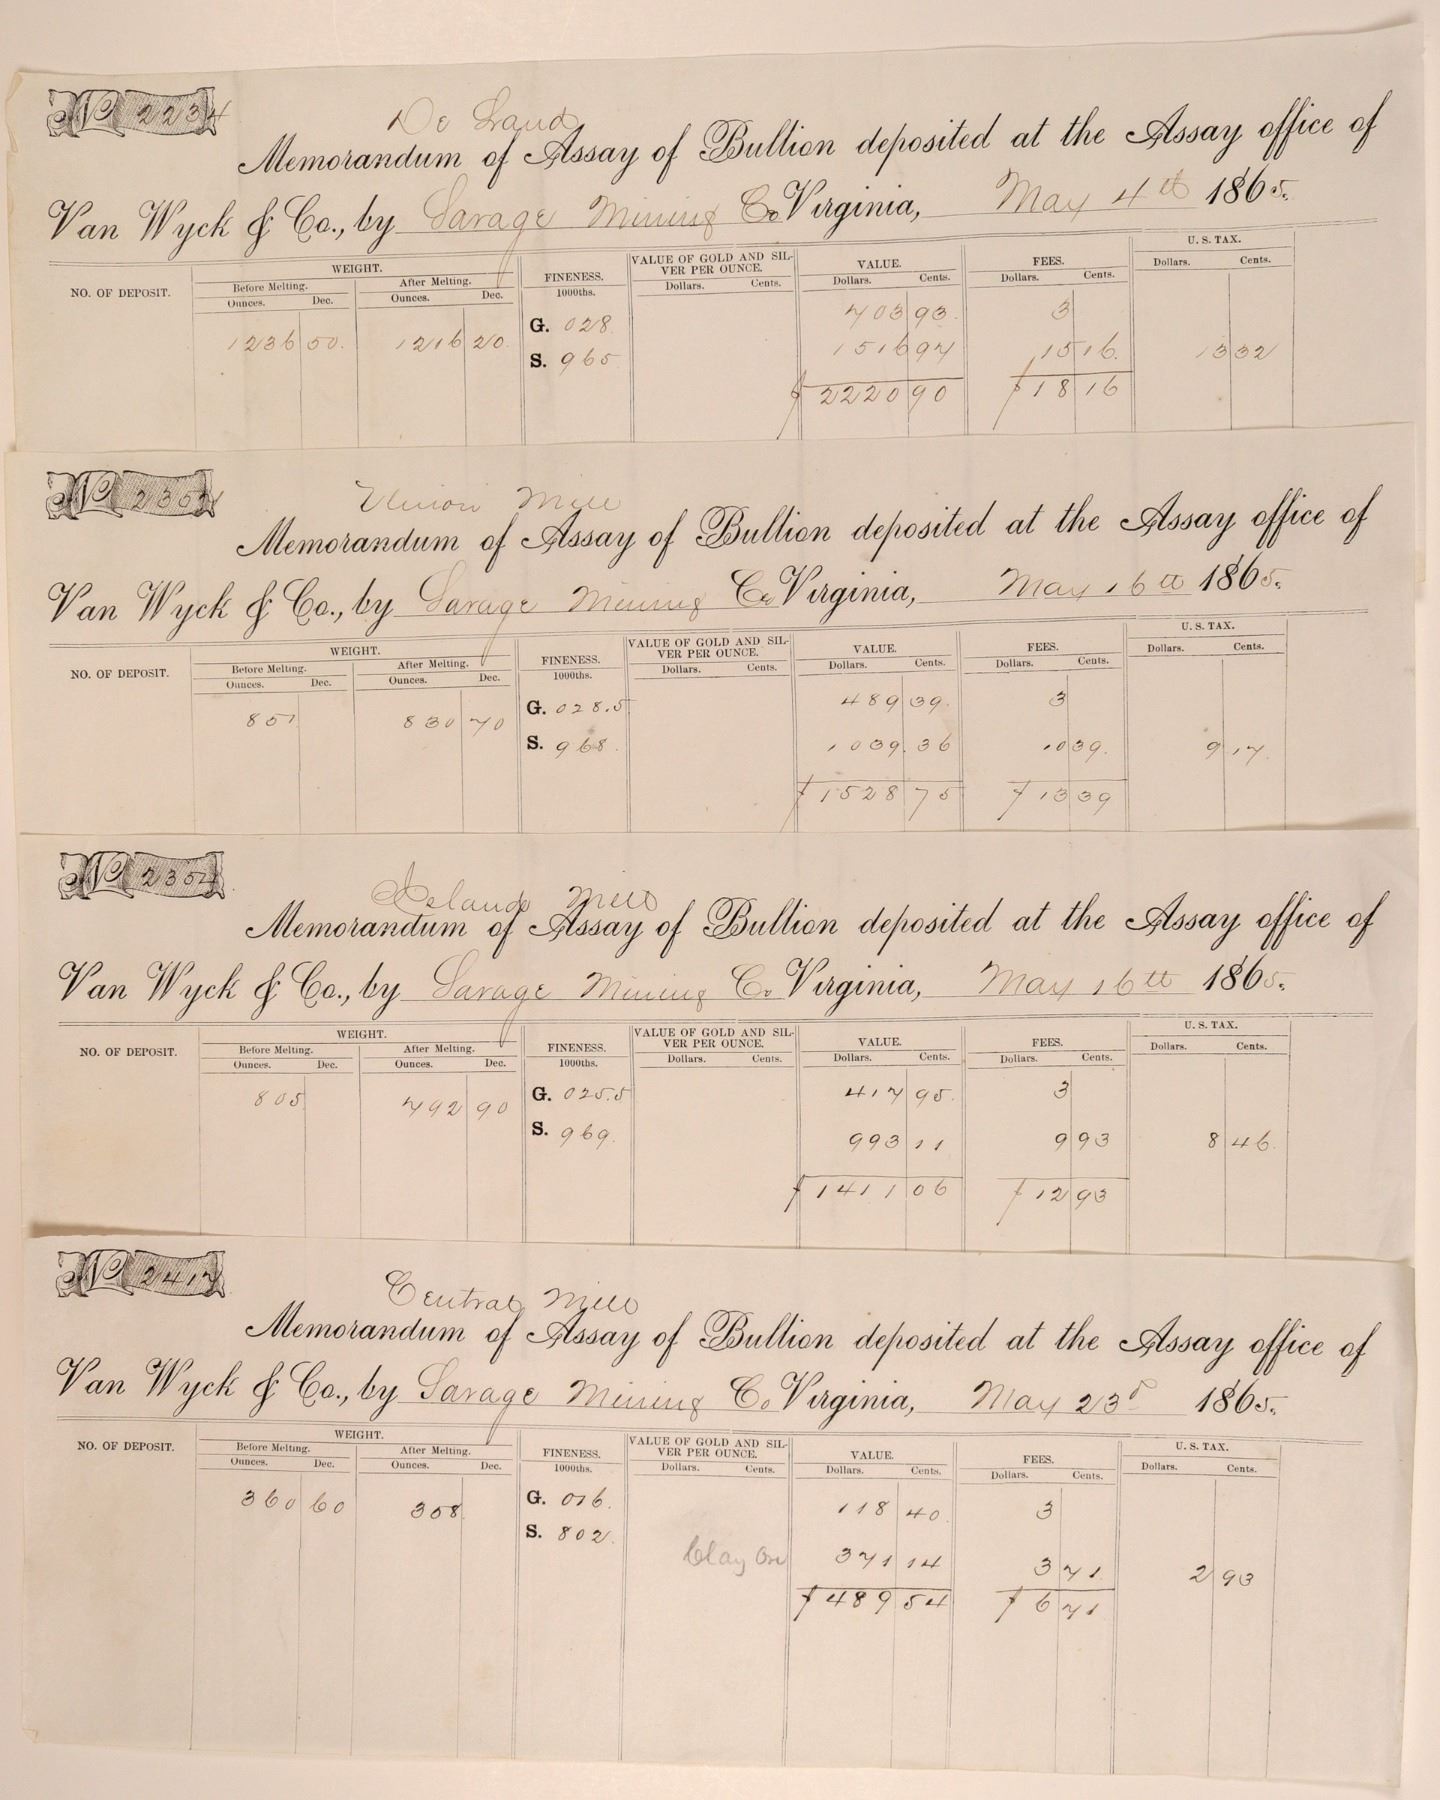 No 2234
De Land
Memorandum of Assay of Bullion deposited at the Assay office of
Van Wyck & Co., by Savage Mining Co Virginia, May 4th 1865.
NO. OF DEPOSIT. WEIGHT. FINENESS. VALUE OF GOLD AND SILVER PER OUNCE. VALUE. FEES. U. S. TAX.
Before Melting. After Melting. 1000ths. Dollars. Cents. Dollars. Cents. Dollars. Cents. Dollars. Cents.
Ounces. Dec. Ounces. Dec.
G. 028 703 93. 3
1236 50. 1216 20. S. 965 1516 97 15 16. 13 32
$ 2220 90 $ 18 16
No
Union Mill
Memorandum of Assay of Bullion deposited at the Assay office of
Van Wyck & Co., by Savage Mining Co Virginia, May 16th 1865.
NO. OF DEPOSIT. WEIGHT. FINENESS. VALUE OF GOLD AND SILVER PER OUNCE. VALUE. FEES. U. S. TAX.
Before Melting. After Melting. 1000ths. Dollars. Cents. Dollars. Cents. Dollars. Cents. Dollars. Cents.
Ounces. Dec. Ounces. Dec.
G. 028.5 489 39. 3
851 830 70 S. 968. 1039. 36 10 39. 9 17.
$ 1528 75 $ 13 39
No 2354
Deland Mill
Memorandum of Assay of Bullion deposited at the Assay office of
Van Wyck & Co., by Savage Mining Co Virginia, May 16th 1865.
NO. OF DEPOSIT. WEIGHT. FINENESS. VALUE OF GOLD AND SILVER PER OUNCE. VALUE. FEES. U. S. TAX.
Before Melting. After Melting. 1000ths. Dollars. Cents. Dollars. Cents. Dollars. Cents. Dollars. Cents.
Ounces. Dec. Ounces. Dec.
G. 025.5 417 95. 3
805 792 90 S. 969. 993 11 9 93 8 46.
$ 1411 06 $ 12 93
No 2417
Central Mill
Memorandum of Assay of Bullion deposited at the Assay office of
Van Wyck & Co., by Savage Mining Co Virginia, May 23d 1865.
NO. OF DEPOSIT. WEIGHT. FINENESS. VALUE OF GOLD AND SILVER PER OUNCE. VALUE. FEES. U. S. TAX.
Before Melting. After Melting. 1000ths. Dollars. Cents. Dollars. Cents. Dollars. Cents. Dollars. Cents.
Ounces. Dec. Ounces. Dec.
360 60 358. G. 016. 118 40. 3
S. 802. Clay Ore 371 14 3 71 2 93
$ 489 54 $ 6 71